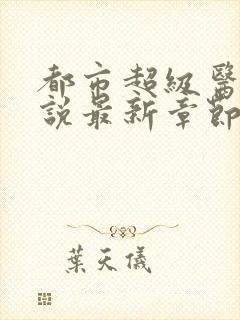 都市超級醫
說最新章節
葉天儀